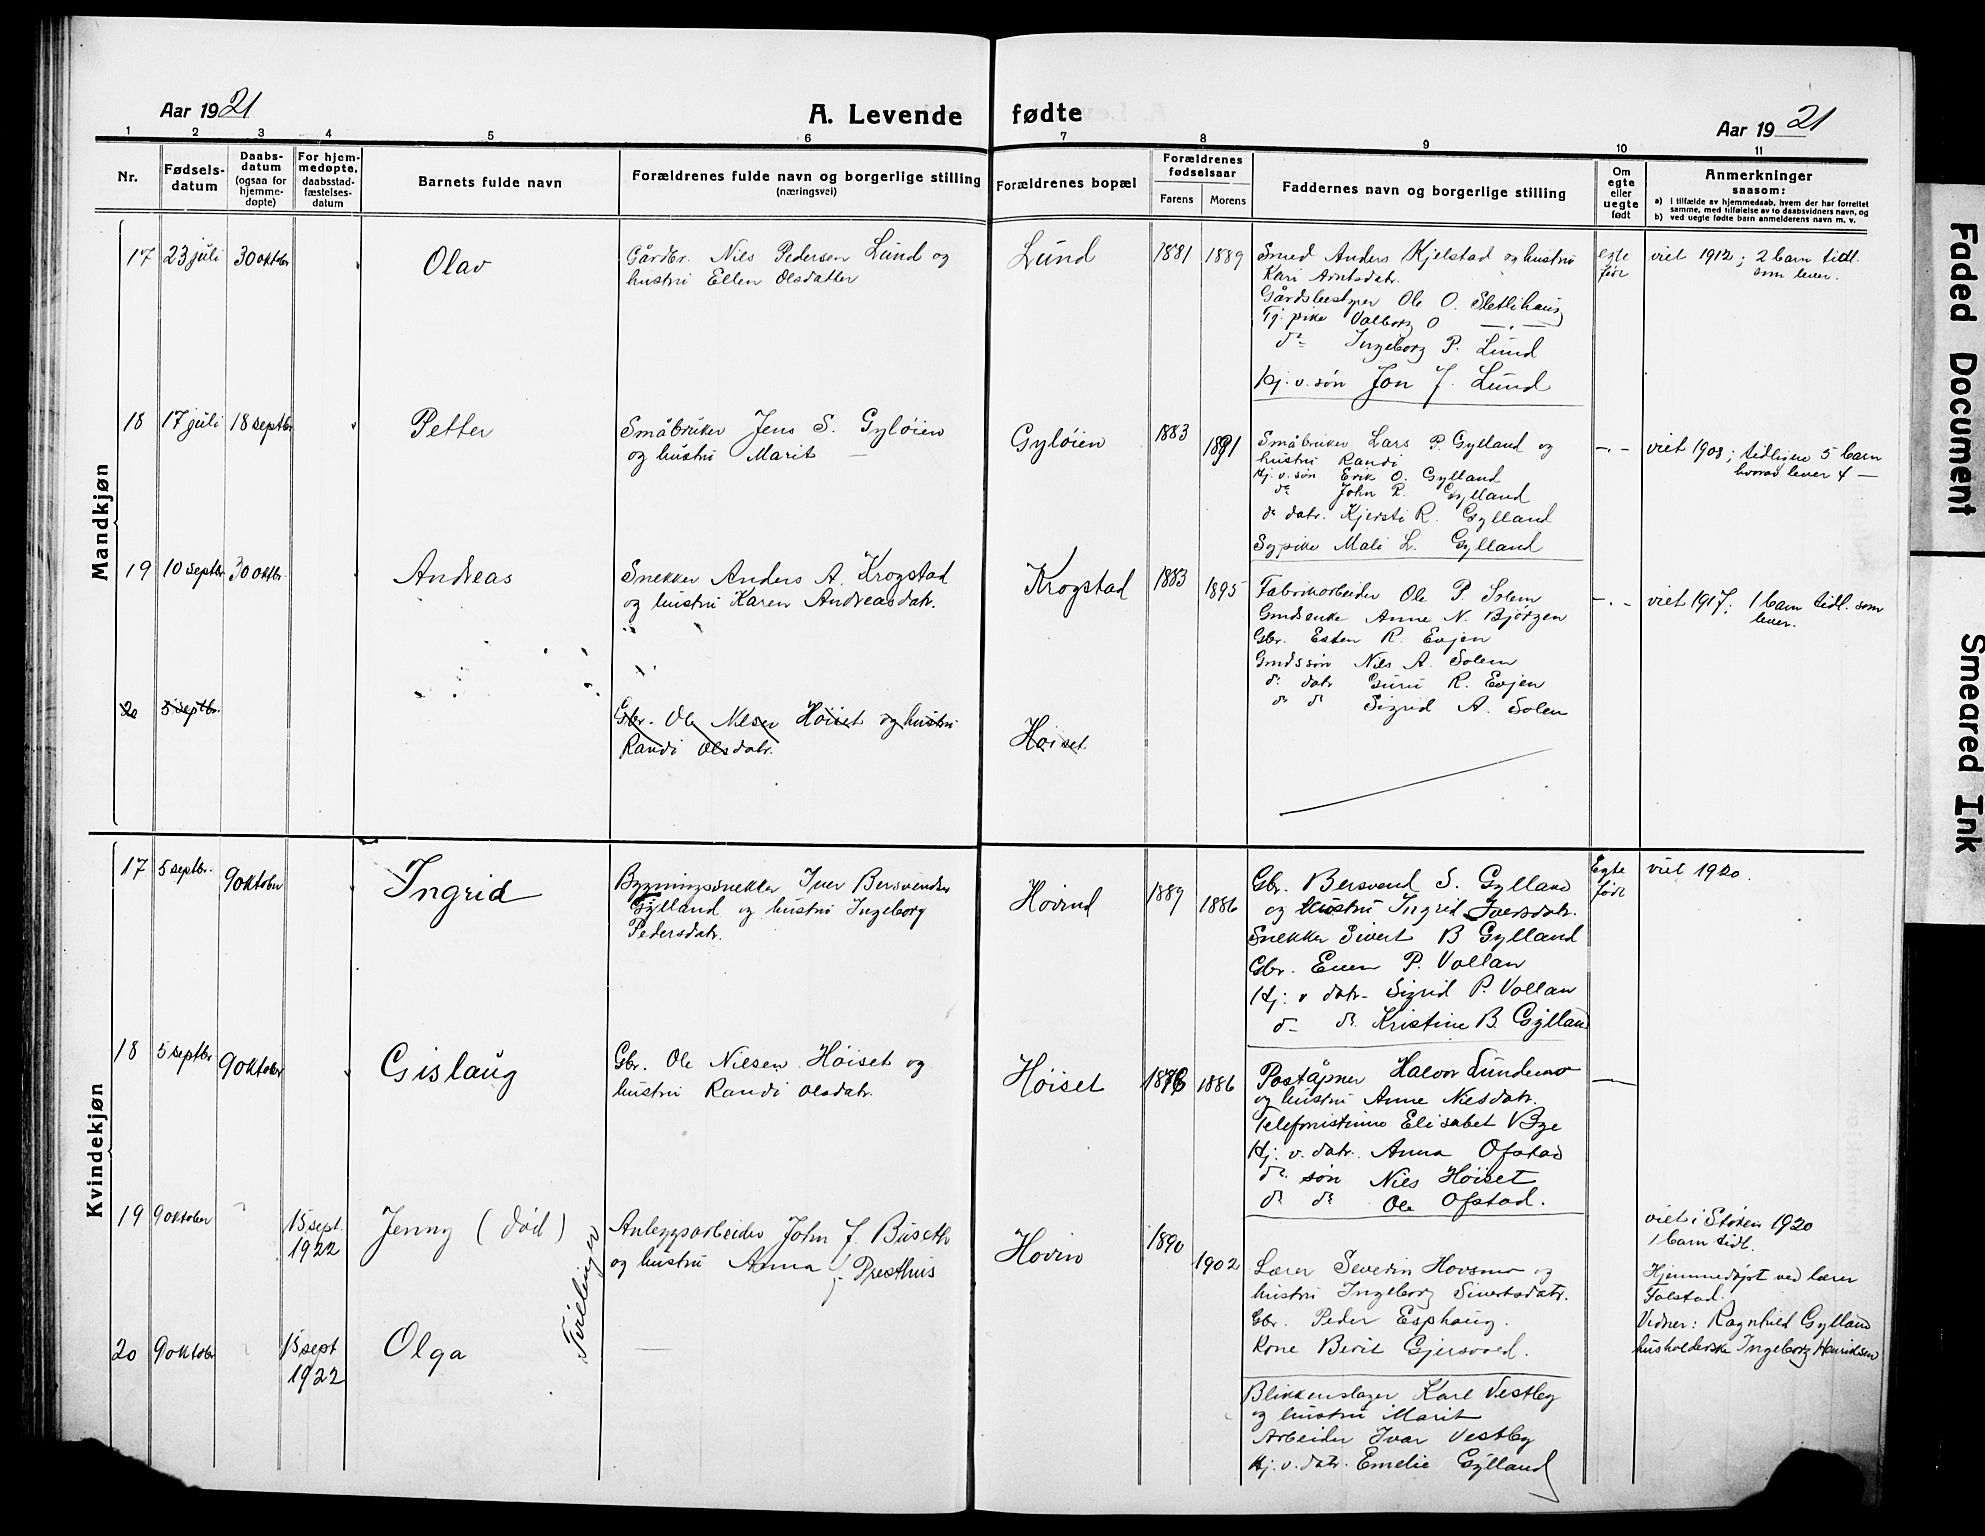 Aar 1921
A. Levende fødte
Aar 1921
1 2 3 4 5 6 7 8 9 10 11
Nr.
Fødsels-
datum
Daabs-
datum
(ogsaa for
hjemme-
døpte)
For hjem-
medøpte,
daabsstad-
fæstelses-
datum
Barnets fulde navn
Forældrenes fulde navn og borgerlige stilling
(næringsvei)
Forældrenes bopæl
Forældrenes
fødselsaar
Farens Morens
Faddernes navn og borgerlige stilling
Om
egte
eller
uegte
født
Anmerkninger
saasom:
a) i tilfælde av hjemmedaab, hvem der har forrettet
samme, med tilføielse av to daabsvidners navn, og
b) ved uegte fødte barn anmelderens navn m. v.
Mandkjøn
17 23 juli 30 oktbr
Olav
Gårdbr. Nils Pedersen Lund og
hustru Ellen Olsdatter
Lund
1881 1889
Smed Anders Kjelstad og hustru
Kari Arntsdatr.
Gårdsbestyrer Ole O. Sletlihaug
Tj. pike Valborg O — " —
do Ingeborg P. Lund
Hj. v. søn Jon J. Lund
egte
født
viet 1912; 2 barn tidl.
som lever.
18 17 juli 18 septbr
Petter
Småbruker Jens S. Gyløien
og hustru Marit —
Gyløien
1883 1891
Småbruker Lars P. Gylland og
hustru Randi
Hj. v. søn Erik O. Gylland
do John R. Gylland
do datr. Kjersti R. Gylland
Sypike Mali L. Gylland
— . —
viet 1908; tidligere 5 barn
hvorav lever 4 —
19 10 septbr 30 oktbr.
Andreas
Snekker Anders A. Krogstad
og hustru Karen Andreasdatr.
Krogstad
1883 1895
Fabrikarbeider Ole P. Solem
Grndsenke Anne N. Bjørgen
Gbr. Esten R. Evjen
Grndssøn Nils A. Solem
do datr Guru R. Evjen
do do Sigrid A. Solem
— . —
viet 1917; 1 barn tidl. som
lever.
20 5 septbr.
Gbr. Ole Nilsen Høiset og hustru
Randi Olsdatr.
Høiset
Kvindekjøn
17 5 septbr. 9 oktober
Ingrid
Bygningssnekker Iver Bersvendsen
Gylland og hustru Ingeborg
Pedersdatr.
Hovind
1889 1886
Gbr. Bersvend S. Gylland
og hustru Ingrid Iversdatr.
Snekker Sivert B Gylland
Gbr. Even P. Vollan
Hj: v datr. Sigrid P. Vollan
do do Kristine B. Gylland
Egte
født
viet 1920.
18 5 septbr 9 oktober
Gislaug
Gbr. Ole Nilsen Høiset og
hustru Randi Olsdatr.
Høiset
1876 1886
Poståpner Halvor Lundemo
og hustru Anne Nilsdatr.
Telefonistinne Elisabet Bye
Hj. v. datr. Anna Ofstad
do søn Nils Høiset
do do Ole Ofstad.
—
19 9 oktober
15 sept.
1922
Jenny (død)
Tvillinger
Anleggsarbeider John J. Buseth
og hustru Anna f. Presthus
Hovin
1890 1902
Lærer Severin Hovsmo og
hustru Ingeborg Sivertsdatr.
Gbr. Peder Esphaug.
Kone Berit Gjersvold.
viet i Støren 1920
1 barn tidl.
Hjemmedøpt ved lærer
Folstad.
Vidner: Ragnhild Gylland
husholderske Ingeborg Henriksen
20 9 oktobr
15 sept
1922
Olga
—
Blikkenslager Karl Vestby
og hustru Marit
Arbeider Ivar Vestby
Hj. v. datr. Emelie Gylland
Faded Document
Smeared Ink